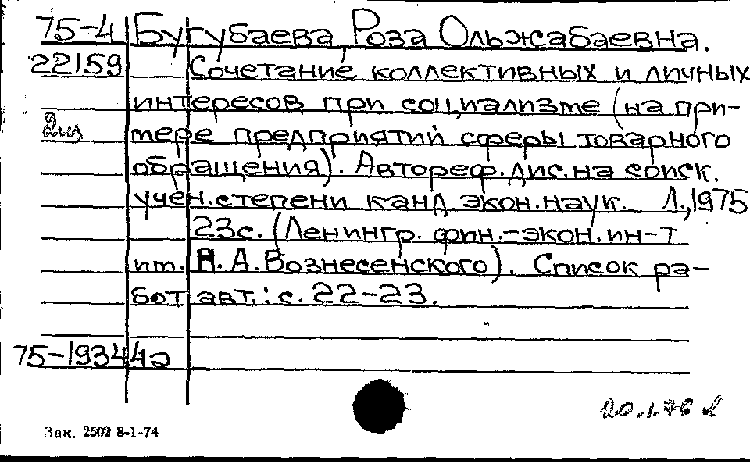 75-4 Бугубаева, Роза Ольжабаевна.
22159 Сочетание коллективных и личных
интересов при социализме (на при-
мере предприятий сферы товарного
обращения). Автореф. дис. на соиск.
учен. степени канд. экон. наук. Л., 1975
23с. (Ленингр. фин.-экон. ин-т
им. Н. А. Вознесенского). Список ра-
бот авт.: с. 22-23.
75-19344а
20.1.76
Зак. 2502 8-1-74